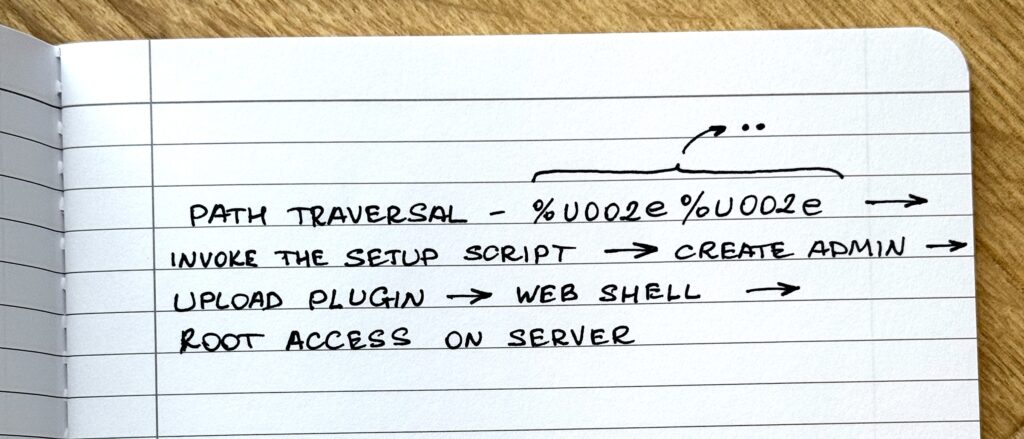 ..
PATH TRAVERSAL - %U002e %U002e →
INVOKE THE SETUP SCRIPT → CREATE ADMIN →
UPLOAD PLUGIN → WEB SHELL →
ROOT ACCESS ON SERVER